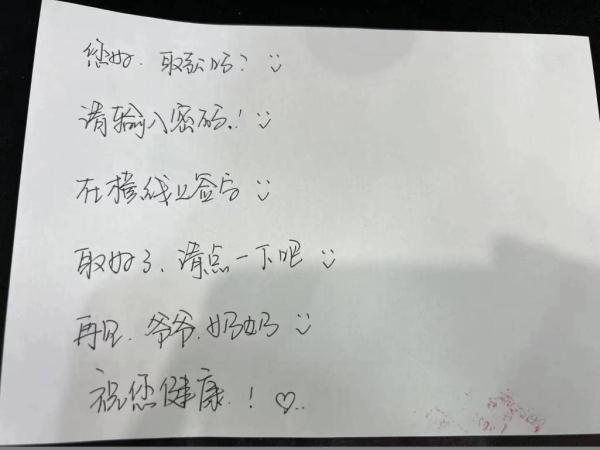 您好.取款吗? :)
请输入密码.! :)
在横线上签名 :)
取好了、请点一下吧 :)
再见.爷爷.奶奶 :)
祝您健康.! ♡..